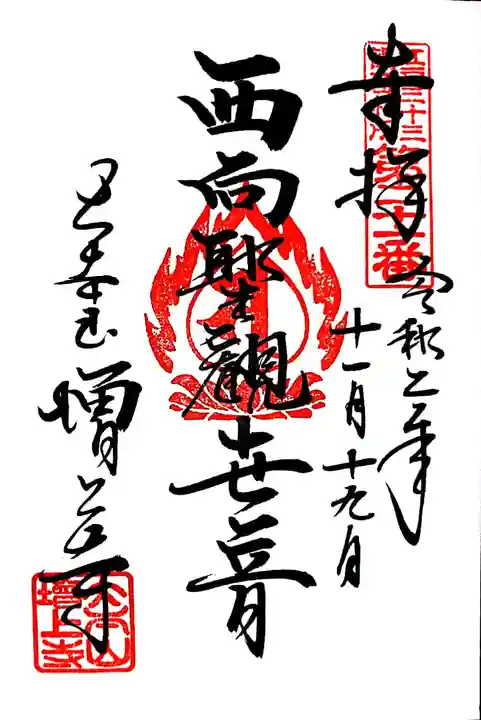 奉拝
令和二年
十一月十九日
江戸三十三
第二十一番
西向聖観世音
増上寺
大本山
増上寺